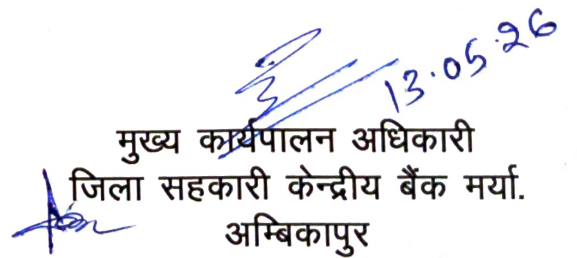 13.05.26
मुख्य कार्यपालन अधिकारी
जिला सहकारी केन्द्रीय बैंक मर्या.
अम्बिकापुर